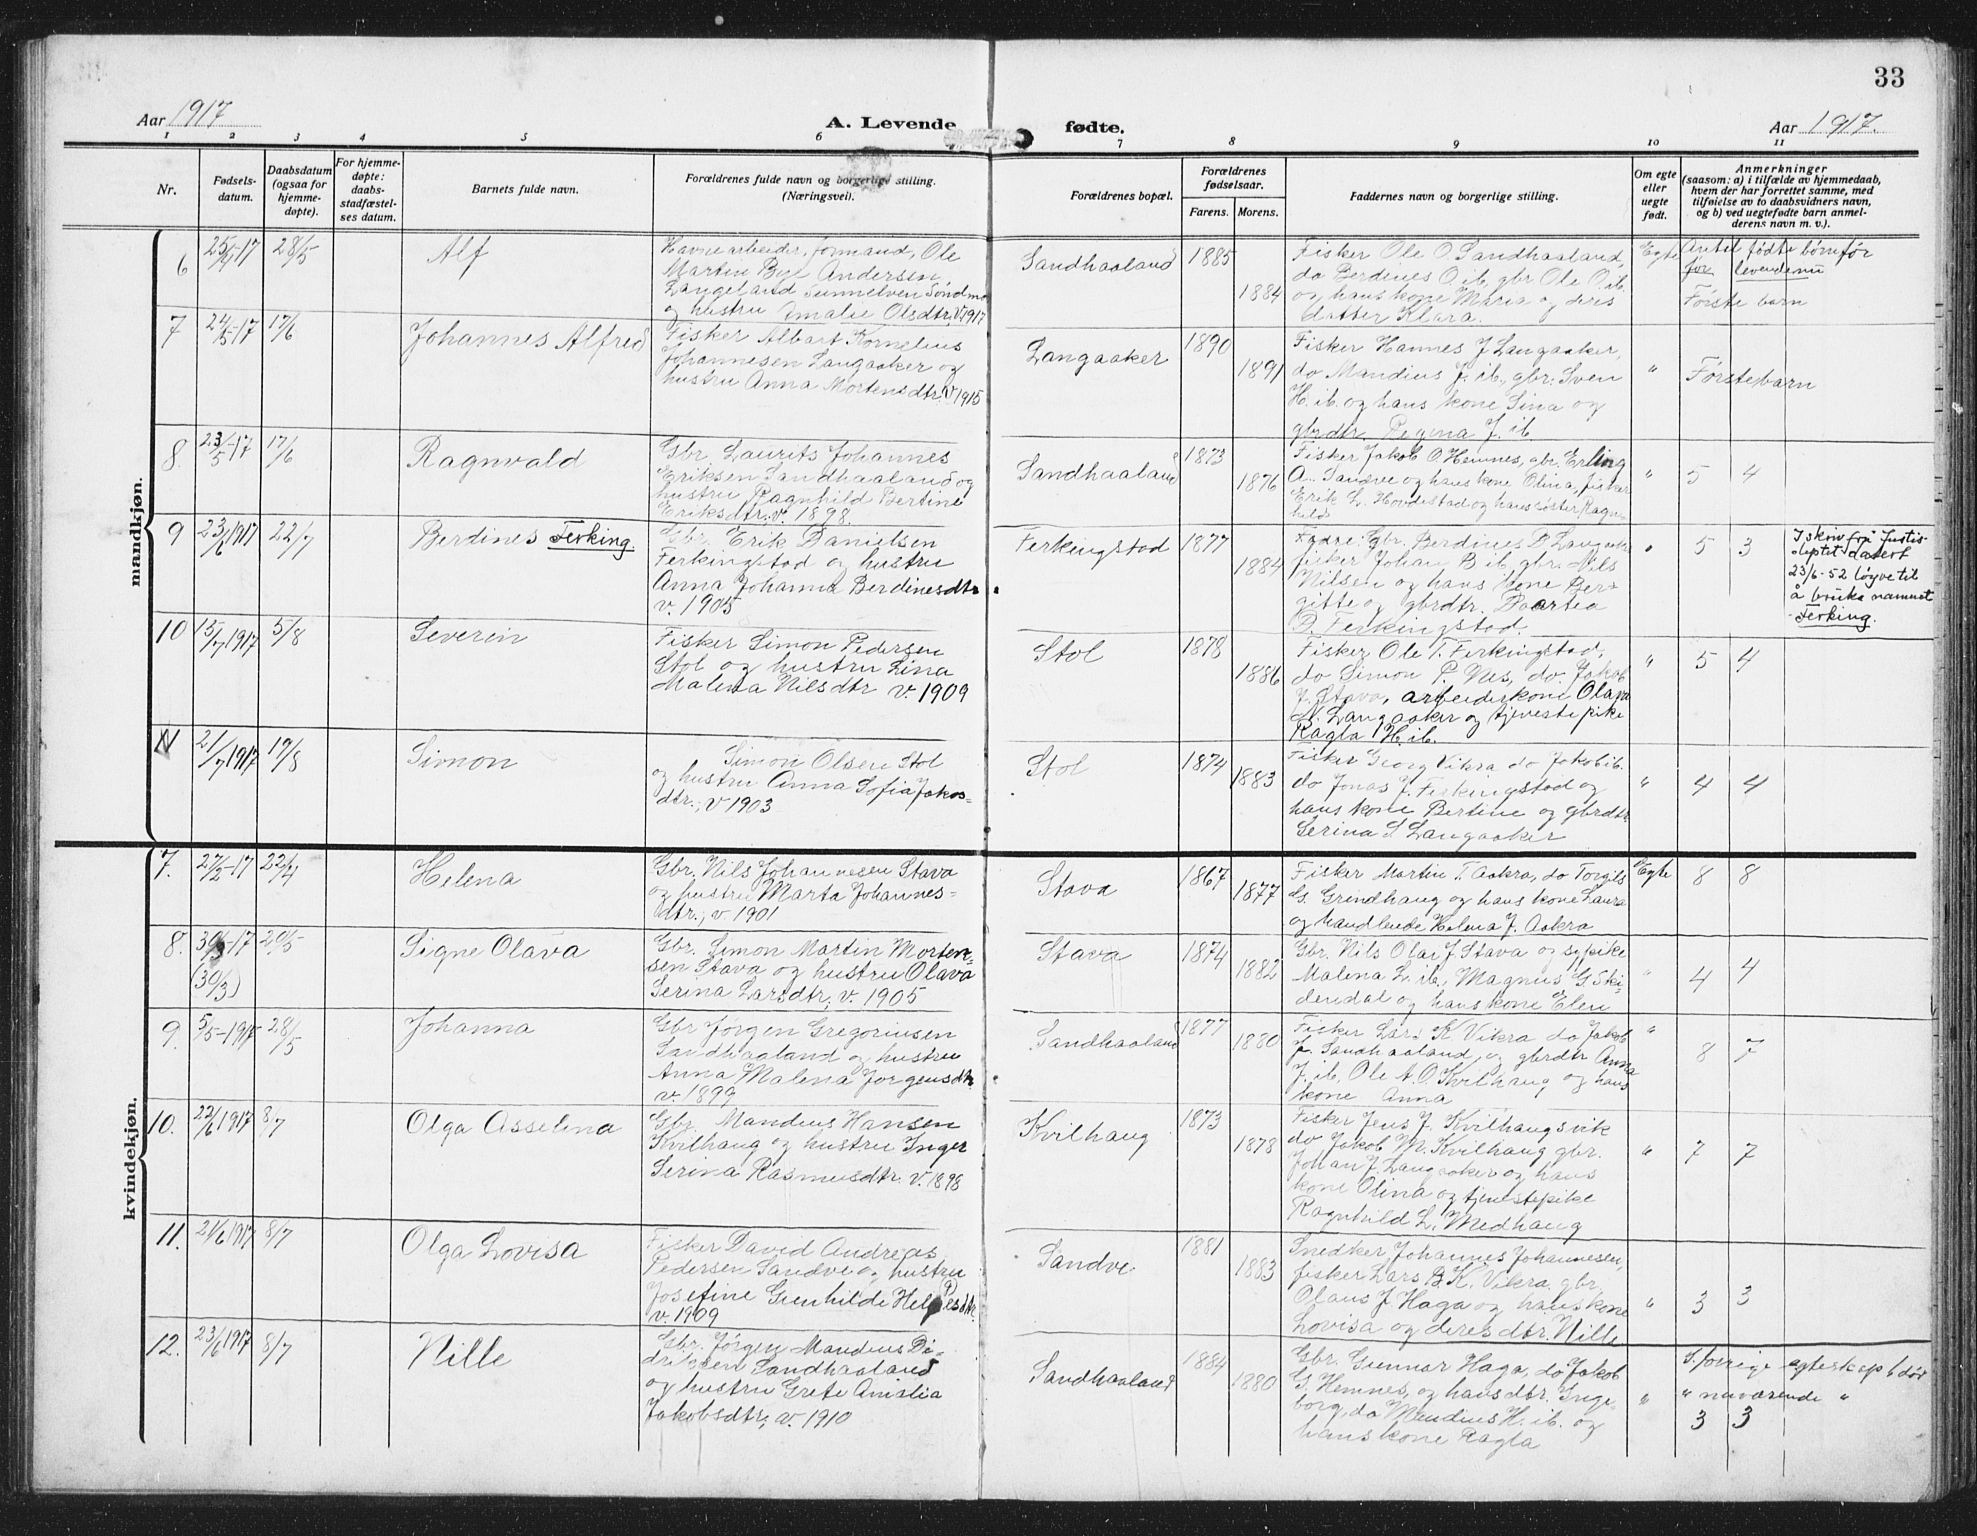 33
Aar 1917
A. Levende
fødte.
Aar 1917.
1 2 3 4 5 6 7 8 9 10 11
Nr.
Fødsels-
datum.
Daabsdatum
(ogsaa for
hjemme-
døpte).
For hjemme-
døpte:
daabs-
stadfæstel-
ses datum.
Barnets fulde navn.
Forældrenes fulde navn og borgerlige stilling.
(Næringsvei).
Forældrenes bopæl.
Forældrenes
fødselsaar.
Farens. Morens.
Faddernes navn og borgerlige stilling.
Om egte
eller
uegte
født.
Anmerkninger
(saasom: a) i tilfælde av hjemmedaab,
hvem der har forrettet samme, med
tilføielse av to daabsvidners navn,
og b) ved uegtefødte barn anmel-
derens navn m. v.).
mandkjøn.
6 25/4-17 28/5 Alf
Havnearbeider, formand, Ole
Martin Andersen
Langeland Sunnelven Søndm
og hustru Amalie Olsdtr, V 1917
Sandhaaland 1885 1884
Fisker Ole O Sandhaaland,
do Berdenes O. ib. gbr Ole O. ib.
og hans kone Maria og deres
datter Klara.
Egte
Antal fødte børn før
før levende nu
Første barn
7 24/5-17 17/6 Johannes Alfred
Fisker Albart Kornelius
Johannesen Langaaker og
hustru Anna Mortensdtr. V 1915
Langaaker 1890 1891
Fisker Hannes J Langaaker,
do Mandius J. ib., gbr. Sven
H. ib. og hans kone Sina og
gbrdtr. Regina J. ib.
" Første barn
8. 23/5-17 17/6 Ragnvald
Gbr. Laurits Johannes
Eriksen Sandhaaland og
hustru Ragnhild Bertine
Eriksdtr. v. 1898.
Sandhaaland 1873 1876
Fisker Jakob O Hemnes, gbr. Erling
A. Sandve og hans kone Olina, fisker
Erik L. Hovdestad og hans søster Ragn-
hild
" 5 4
9 23/6 1917 22/7 Berdines Ferking
Gbr. Erik Danielsen
Ferkingstad og hustru
Anna Johanna Berdinesdtr
v. 1905
Ferkingstad 1877 1884
Fadre: Gbr. Berdines D Langaaker
fisker Johan B ib, gbr. Nils
Nilsen og hans kone Ber-
gitte og gbrdtr. Daartea
D. Ferkingstad.
" 5 3
I skriv frå Justis-
deptet datert
23/6-52 løyve til
å bruka namnet
Ferking.
10 15/7 1917 5/8 Severin
Fisker Simon Pedersen
Stol og hustru Lina
Malena Nilsdtr v. 1909
Stol 1878 1886
Fisker Ole T. Ferkingstad,
do Simon P. Nes, do. Jakob
J. Stava, arbeiderkone Olava
N. Langaaker og tjenestepike
Ragla H. ib.
" 5 4
11 21/7 1917 19/8 Simon
Simon Olsen Stol
og hustru Anna Sofia Jakobs-
dtr., v 1903
Stol 1874 1883
Fisker Georg Vikra do Jakob ib.
do Jonas J. Ferkingstad og
hans kone Bertine og gbrdtr.
Serina S Langaaker
" 4 4
kvindekjøn.
7. 27/2-17 22/4 Helena
Gbr. Nils Johannesen Stava
og hustru Marta Johannes-
dtr., v 1901
Stava 1867 1877
Fisker Martin T. Aakra, do Torgils
G. Grindhaug og hans kone Laura
og handlende Helena J. Aakra
Egte 8 8
8. 30/3-17 20/5 Signe Olava
(30/3)
Gbr. Simon Martin Morten-
sen Stava og hustru Olava
Serina Larsdtr. v. 1905
Stava 1874 1882
Gbr. Nils Olai J Stava og sypike
Malena L. ib., Magnus G. Ski-
dendal og hans kone Elen
" 4 4
9. 5/5-1917 28/5 Johanna
Gbr Jørgen Gregoriusen
Sandhaaland og hustru
Anna Malena Jørgensdtr.
v. 1899
Sandhaaland 1877 1880
Fisker Lars K Vikra do Jakob
J. Sandhaaland, og gbrdtr Anna
J. ib, Ole A. O. Kvilhaug og hans
kone Anna
" 8 7
10. 22/6 1917 8/7 Olga Asselena
Gbr. Mandius Hansen
Kvilhaug og hustru Inger
Serina Rasmusdtr. v. 1898
Kvilhaug 1873 1878
Fisker Jens J. Kvilhaugsvik
do Jakob M. Kvilhaug gbr.
Johan J. Langaaker og hans
kone Olina og tjenestepike
Ragnhild L. Medhaug
" 7 7
11. 21/6 1917 8/7 Olga Lovisa
Fisker David Andreas
Pedersen Sandve og hustru
Josefine Gunhilde
v. 1909
Sandve 1881 1883
Snedker Johannes Johannesen,
fisker Lars B K. Vikra gbr.
Olaus J Haga og hans kone
Lovisa og deres dtr. Nille
" 3 3
12. 23/6 1917 8/7 Nille
Gbr. Jørgen Mandius Di-
driksen Sandhaaland
og hustru Grete Amalia
Jakobsdtr, v. 1910
Sandhaaland 1884 1880
Gbr. Gunnar Haga, do Jakob
G. Hemnes, og hans dtr. Inge-
borg, do Mandius H. ib. og
hans kone Ragla
"
I forrige egteskap 6 dør
" nuværende "
3 3